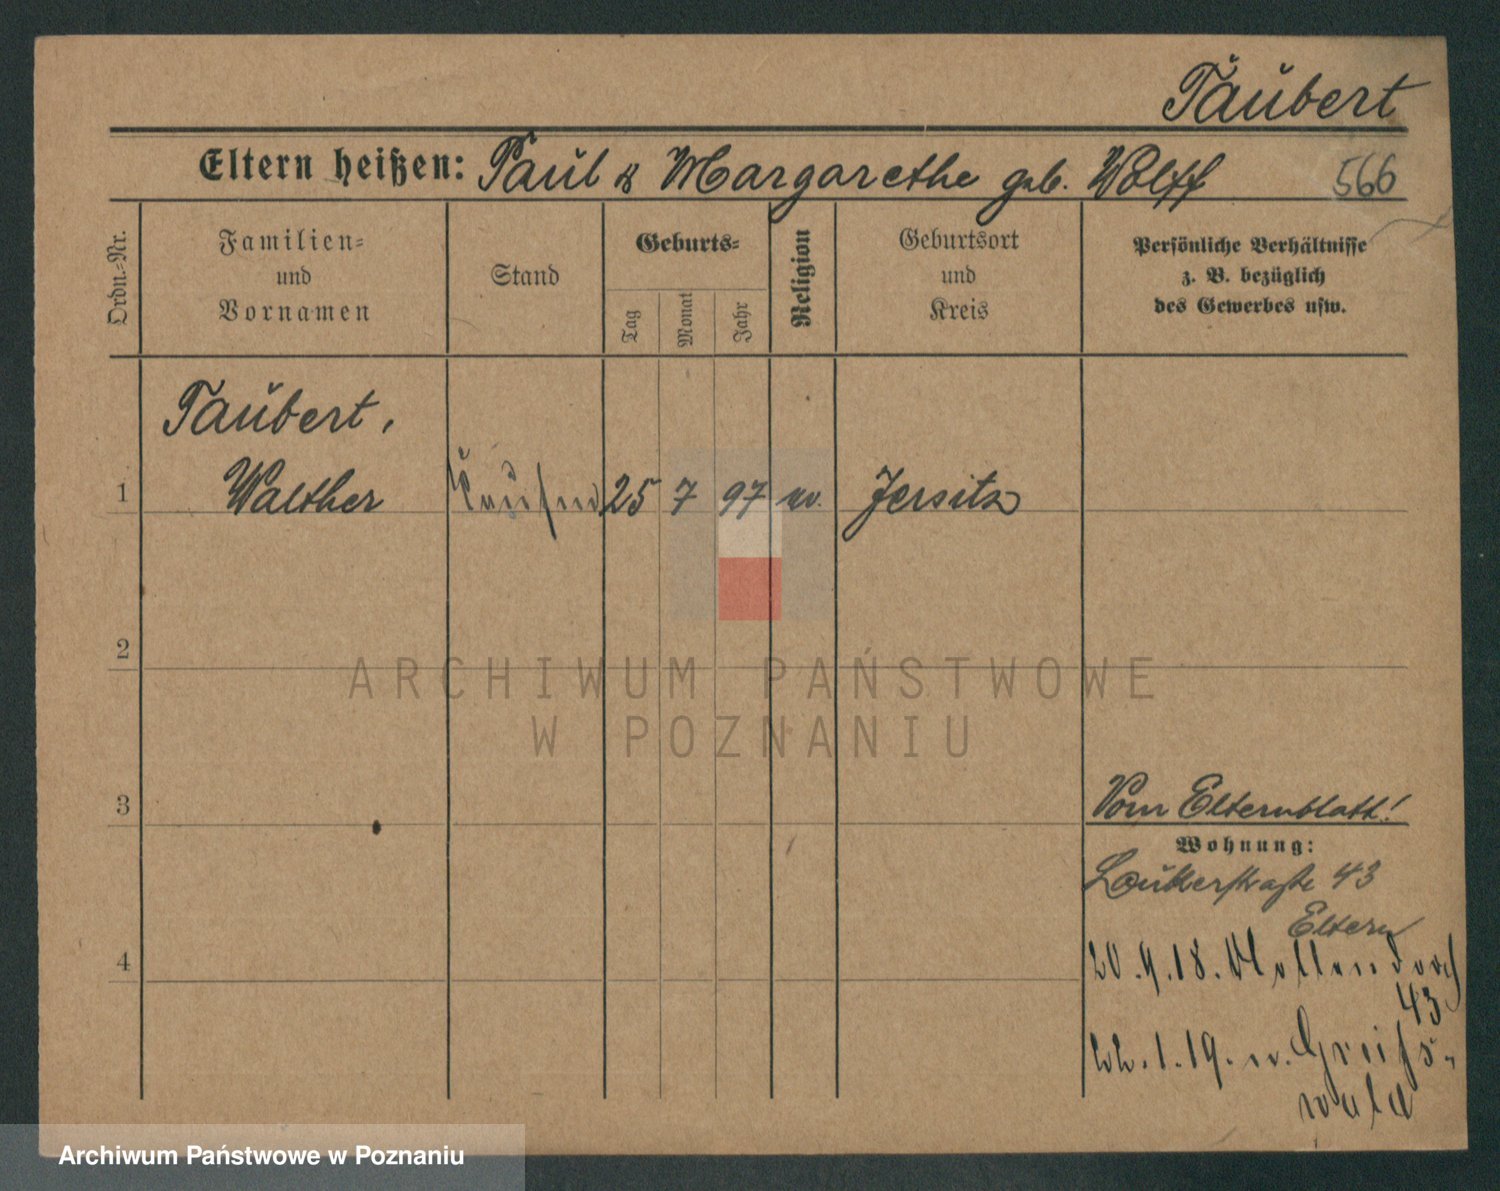 Taŭbert
Eltern heißen: Paŭl & Margarethe geb. Wolff 566
Ordn.=Nr.
Familien=
und
Vornamen
Stand
Geburts=
Tag
Monat
Jahr
Religion
Geburtsort
und
Kreis
Persönliche Verhältnisse
z. B. bezüglich
des Gewerbes usw.
Taŭbert,
1 Walther 25 7 97 ev. Jersitz
2
3
4
Vom Elternblatt!
Wohnung:
43
Eltern
20.9.18.
43
22.1.19. n. Greifs-
wald
ARCHIWUM PAŃSTWOWE
W POZNANIU
Archiwum Państwowe w Poznaniu